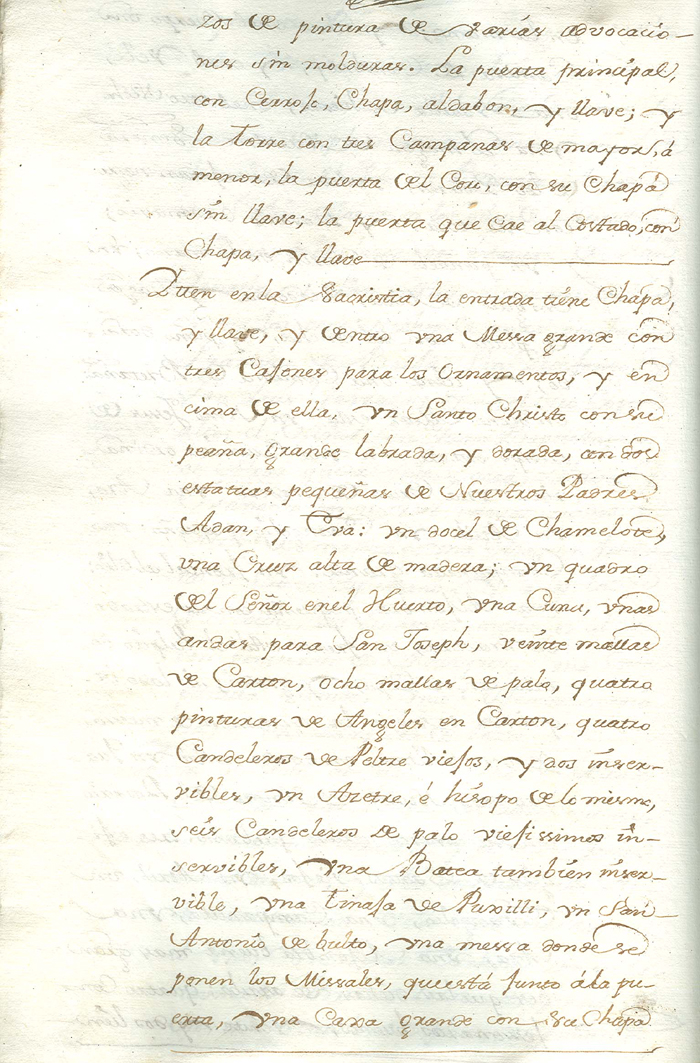 zos de pintura de varias advocacio-
nes sin molduras. La puerta principal,
con Cerrojo, Chapa, aldabon, y llave; y
la Torre con tres Campanas de mayor, á
menor, la puerta del Coro, con su Chapa
sin llave; la puerta que cae al Costado, con
Chapa, y llave
Itten en la Sacristia, la entrada tiene Chapa,
y llave, y dentro vna Messa grande con
tres Cajones para los Ornamentos, y en
cima de ella, vn Santo Christo con su
peaña, grande labrada, y dorada, con dos
estatuas pequeñas de Nuestros Padres
Adan, y Eva: vn docel de Chamelote,
vna Cruz alta de madera; vn quadro
del Señor en el Huerto, vna Cuna, vnas
andas para San Joseph, veinte mallas
de Carton, ocho mallas de palo, quatro
pinturas de Angeles en Carton, quatro
Candeleros de Peltre viejos, y dos inser-
vibles, vn Azetre, é hisopo de lo mismo,
seis Candeleros de palo viejissimos in-
servibles, vna Batea tambien inser-
vible, vna Tinaja de Puxilli, vn San
Antonio de bulto, vna messa donde se
ponen los Missales, que está junto á la pu-
erta, vna Caxa grande con su Chapa